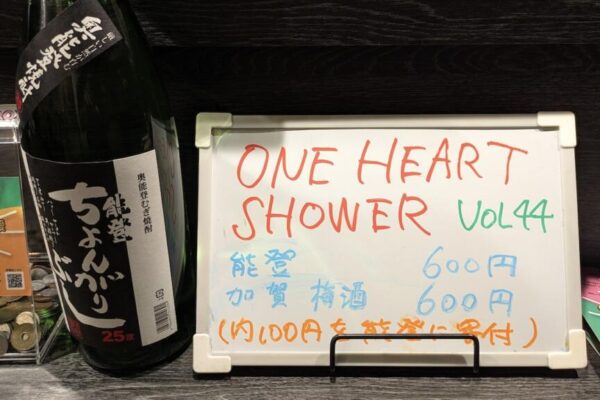 奥能登焼酎
奥能登むぎ焼酎
能登
ちょんがりぶし
25度
ONE HEART
SHOWER VOL44
能登 600円
加賀梅酒 600円
(内100円を能登に寄付)